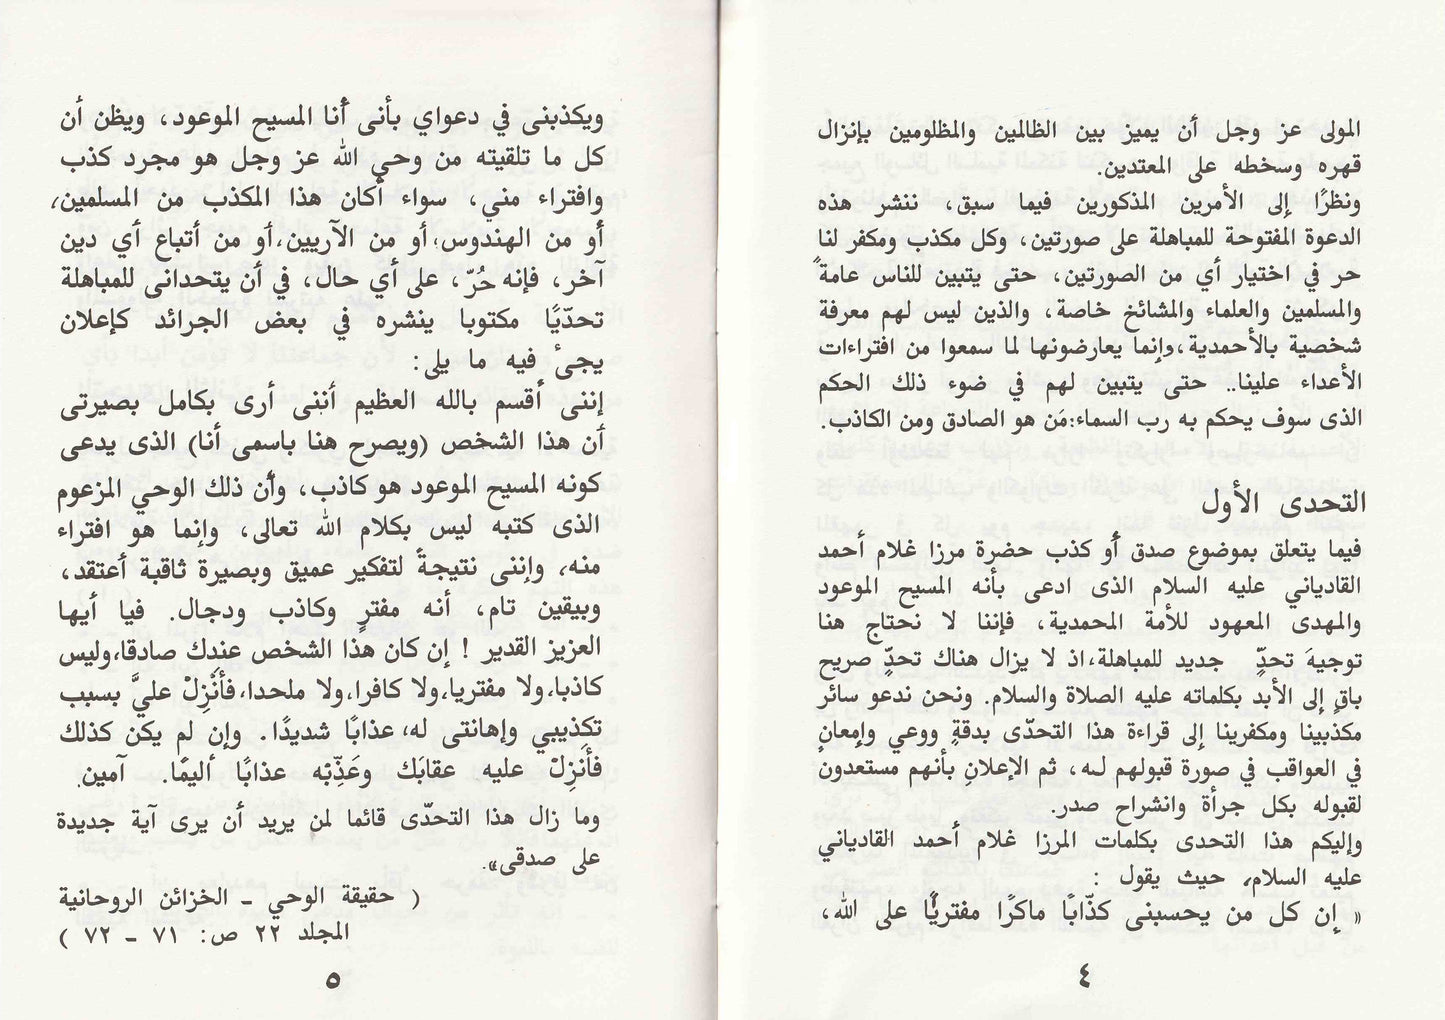 المولى عز وجل أن يميز بين الظالمين والمظلومين بإنزال
قهره وسخطه على المعتدين.
ونظرًا إلى الأمرين المذكورين فيما سبق، ننشر هذه
الدعوة المفتوحة للمباهلة على صورتين، وكل مكذب ومكفر لنا
حر في اختيار أي من الصورتين، حتى يتبين للناس عامةً
والمسلمين والعلماء والمشائخ خاصة، والذين ليس لهم معرفة
شخصية بالأحمدية، وإنما يعارضونها لما سمعوا من افتراءات
الأعداء علينا.. حتى يتبين لهم في ضوء ذلك الحكم
الذى سوف يحكم به رب السماء: مَن هو الصادق ومن الكاذب.
التحدى الأول
فيما يتعلق بموضوع صدق أو كذب حضرة مرزا غلام أحمد
القادياني عليه السلام الذى ادعى بأنه المسيح الموعود
والمهدى المعهود للأمة المحمدية، فإننا لا نحتاج هنا
توجيهَ تحدٍّ جديد للمباهلة، اذ لا يزال هناك تحدٍّ صريح
باقٍ إلى الأبد بكلماته عليه الصلاة والسلام. ونحن ندعو سائر
مكذبينا ومكفرينا إلى قراءة هذا التحدّى بدقةٍ ووعي وإمعانٍ
في العواقب في صورة قبولهم له، ثم الإعلانِ بأنهم مستعدون
لقبوله بكل جرأة وانشراح صدر.
وإليكم هذا التحدى بكلمات المرزا غلام أحمد القادياني
عليه السلام، حيث يقول :
« إن كل من يحسبنى كذّابًا ماكرًا مفتريًّا على الله،
٤
ويكذبنى في دعواي بأنى أنا المسيح الموعود، ويظن أن
كل ما تلقيته من وحي الله عز وجل هو مجرد كذب
وافتراء مني، سواء أكان هذا المكذب من المسلمين،
أو من الهندوس، أو من الآريين، أو من أتباع أي دين
آخر، فإنه حُرّ، على أي حال، في أن يتحدانى للمباهلة
تحدّيًا مكتوبا ينشره في بعض الجرائد كإعلان
يجىٔ فيه ما يلى :
إننى أقسم بالله العظيم أننى أرى بكامل بصيرتى
أن هذا الشخص (ويصرح هنا باسمى أنا) الذى يدعى
كونه المسيح الموعود هو كاذب، وأن ذلك الوحي المزعوم
الذى كتبه ليس بكلام الله تعالى، وإنما هو افتراء
منه، وإننى نتيجةً لتفكير عميق وبصيرة ثاقبة أعتقد،
وبيقين تام، أنه مفترٍ وكاذب ودجال. فيا أيها
العزيز القدير ! إن كان هذا الشخص عندك صادقا، وليس
كاذبا، ولا مفتريا، ولا كافرا، ولا ملحدا، فأَنزِلْ عليَّ بسبب
تكذيبي وإهانتى له، عذابًا شديدًا. وإن لم يكن كذلك
فأَنزِلْ عليه عقابَك وعَذِّبْه عذابًا أليمًا. آمين.
وما زال هذا التحدّى قائما لمن يريد أن يرى آية جديدة
على صدقى».
( حقيقة الوحي ـ الخزائن الروحانية
المجلد ٢٢ ص: ٧١ – ٧٢ )
٥